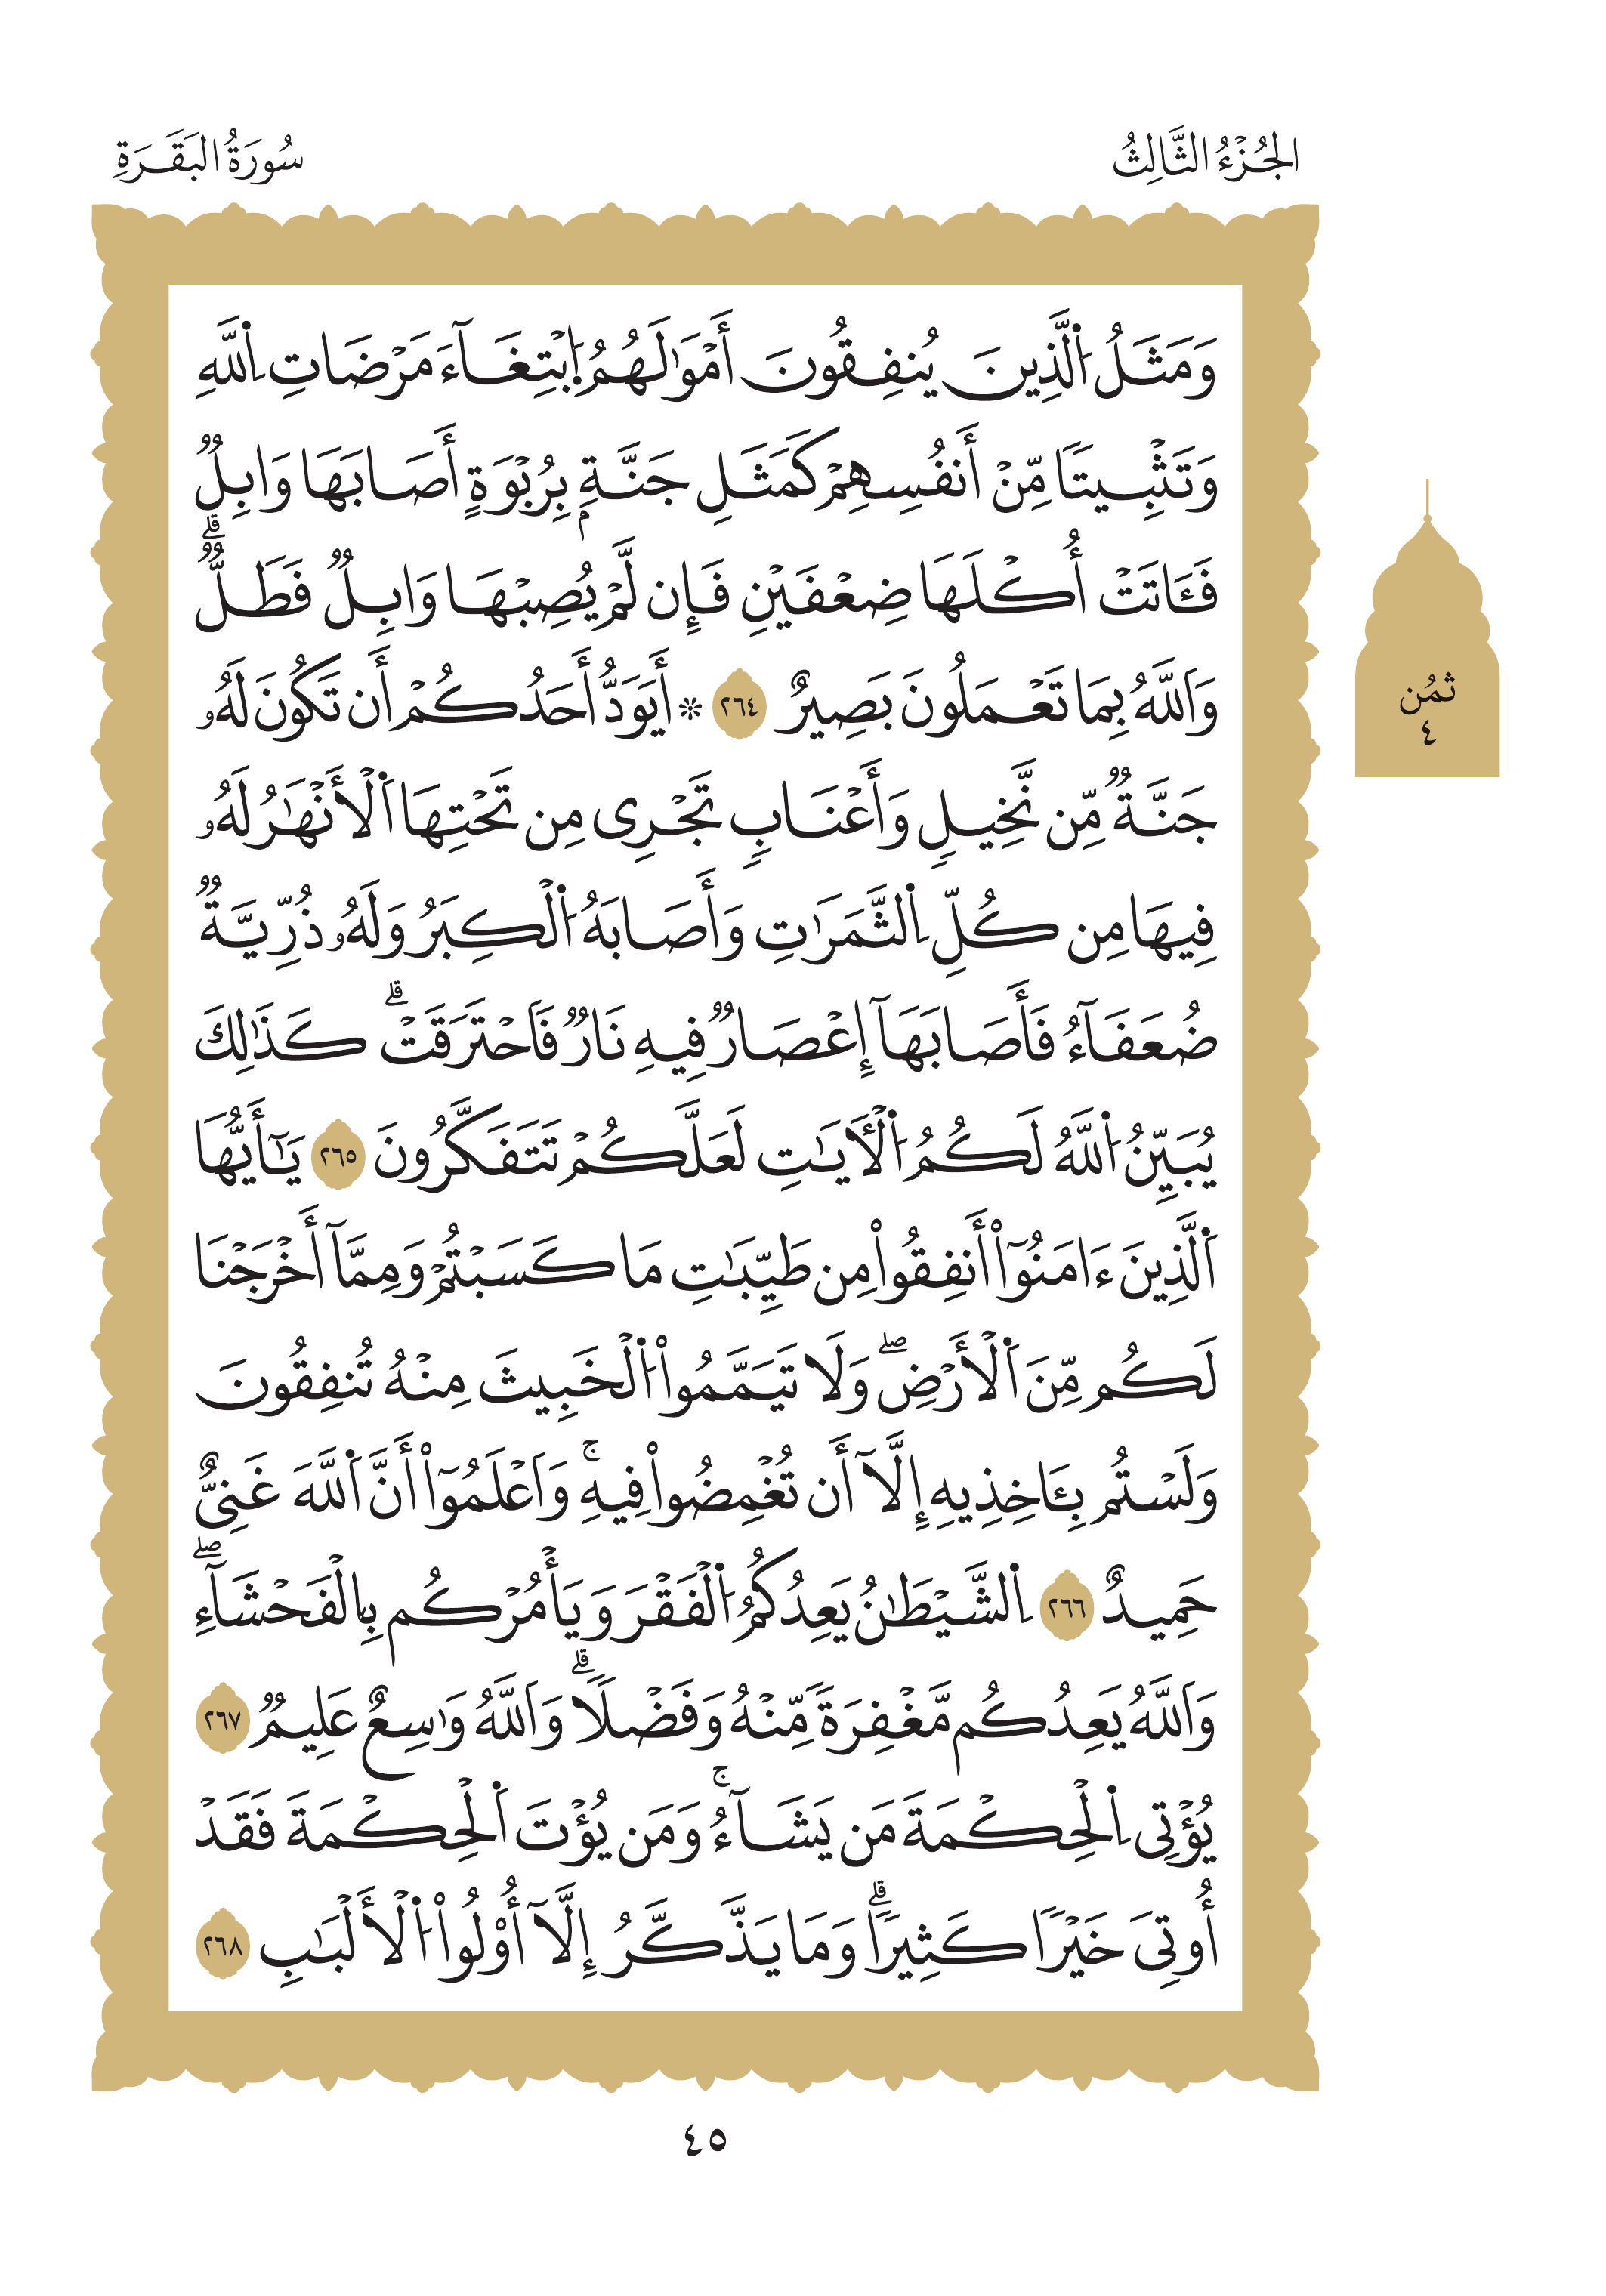 الجُزْءُ الثَّالِثُ
سُورَةُ البَقَرَةِ
وَمَثَلُ اُ۬لذِينَ يُنفِقُونَ أَمْوَٰلَهُمُ اُ۪بْتِغَآءَ مَرْضَاتِ اِ۬للَّهِ
وَتَثْبِيتاٗ مِّنْ أَنفُسِهِمْ كَمَثَلِ جَنَّةِۢ بِرُبْوَةٍ أَصَابَهَا وَابِلٞ
فَـَٔاتَتْ أُكْلَهَا ضِعْفَيْنِ فَإِن لَّمْ يُصِبْهَا وَابِلٞ فَطَلّٞۗ
وَاَللَّهُ بِمَا تَعْمَلُونَ بَصِيرٌ ٢٦٤ ۞ أَيَوَدُّ أَحَدُكُمْ أَن تَكُونَ لَهُۥ
جَنَّةٞ مِّن نَّخِيلٖ وَأَعْنَابٖ تَجْرِى مِن تَحْتِهَا اَ۬لْأَنْهَٰرُ لَهُۥ
فِيهَا مِن كُلِّ اِ۬لثَّمَرَٰتِ وَأَصَابَهُ اُ۬لْكِبَرُ وَلَهُۥ ذُرِّيَّةٞ
ضُعَفَآءُ فَأَصَابَهَآ إِعْصَارٞ فِيهِ نَارٞ فَاَحْتَرَقَتْۗ كَذَٰلِكَ
يُبَيِّنُ اُ۬للَّهُ لَكُمُ اُ۬لْأٓيَٰتِ لَعَلَّكُمْ تَتَفَكَّرُونَ ٢٦٥ يَٰٓأَيُّهَا
اَ۬لَّذِينَ ءَامَنُوٓاْ أَنفِقُواْ مِن طَيِّبَٰتِ مَا كَسَبْتُمْ وَمِمَّآ أَخْرَجْنَا
لَكُم مِّنَ اَ۬لْأَرْضِۖ وَلَا تَيَمَّمُواْ اُ۬لْخَبِيثَ مِنْهُ تُنفِقُونَ
وَلَسْتُم بِـَٔاخِذِيهِ إِلَّآ أَن تُغْمِضُواْ فِيهِۚ وَاَعْلَمُوٓاْ أَنَّ اَ۬للَّهَ غَنِىٌّ
حَمِيدٌ ٢٦٦ اِ۬لشَّيْطَٰنُ يَعِدُكُمُ اُ۬لْفَقْرَ وَيَأْمُرْكُم بِالْفَحْشَآءِۖ
وَاَللَّهُ يَعِدُكُم مَّغْفِرَةٗ مِّنْهُ وَفَضْلاٗۗ وَاَللَّهُ وَٰسِعٌ عَلِيمٞ ٢٦٧
يُؤْتِى اِ۬لْحِكْمَةَ مَن يَشَآءُۚ وَمَن يُؤْتَ اَ۬لْحِكْمَةَ فَقَدْ
أُوتِىَ خَيْراٗ كَثِيراٗۗ وَمَا يَذَّكَّرُ إِلَّآ أُوْلُواْ اُ۬لْأَلْبَٰبِ ٢٦٨
ثمُن
٤
٤٥